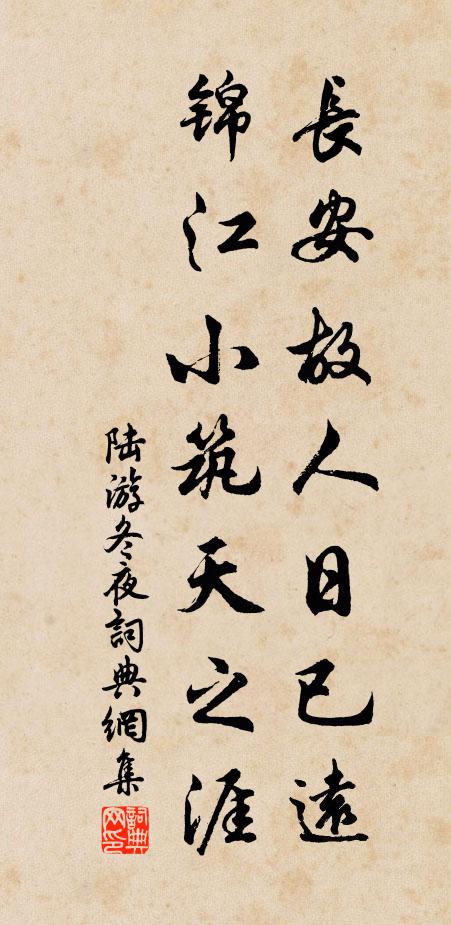 長安故人日已遠
锦江小筑天之涯
陆游冬夜詞典網集
詞典网印